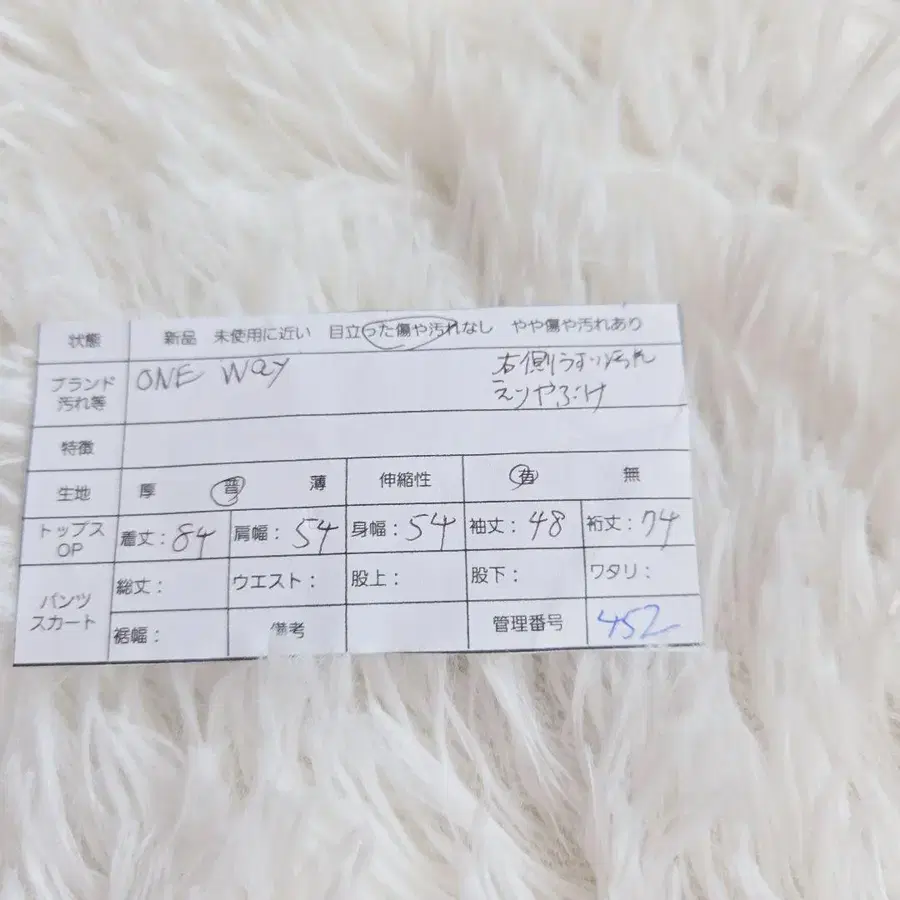 状態 新品 未使用に近い 目立った傷や汚れなし やや傷や汚れあり
ブランド 汚れ等 ONE WAY 右側うすい汚れ
えりやぶけ
特徴
生地 厚 普 薄 伸縮性 有 無
トップス OP 着丈：84 肩幅：54 身幅：54 袖丈：48 裄丈：74
パンツ スカート 総丈： ウエスト： 股上： 股下： ワタリ：
裾幅： 備考 管理番号 452